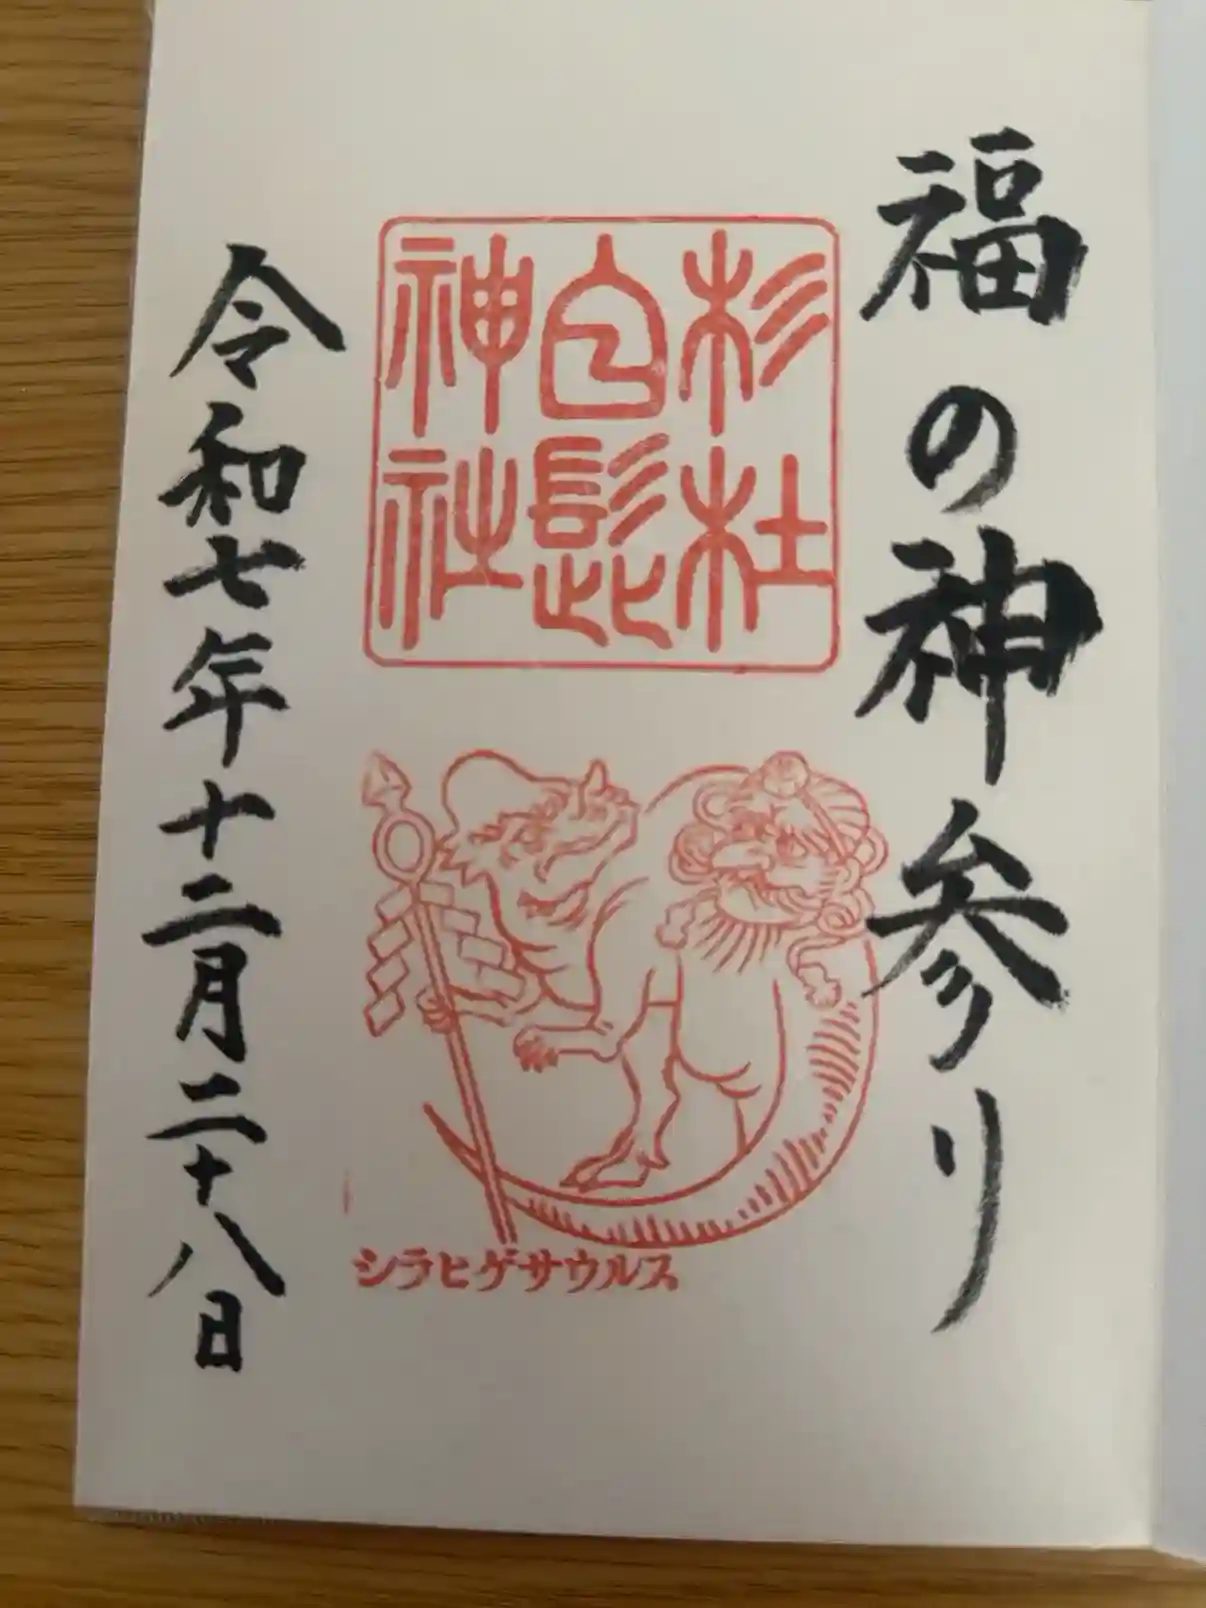 福の神参り
杉杜
白髭
神社
シラヒゲサウルス
令和七年十二月二十八日